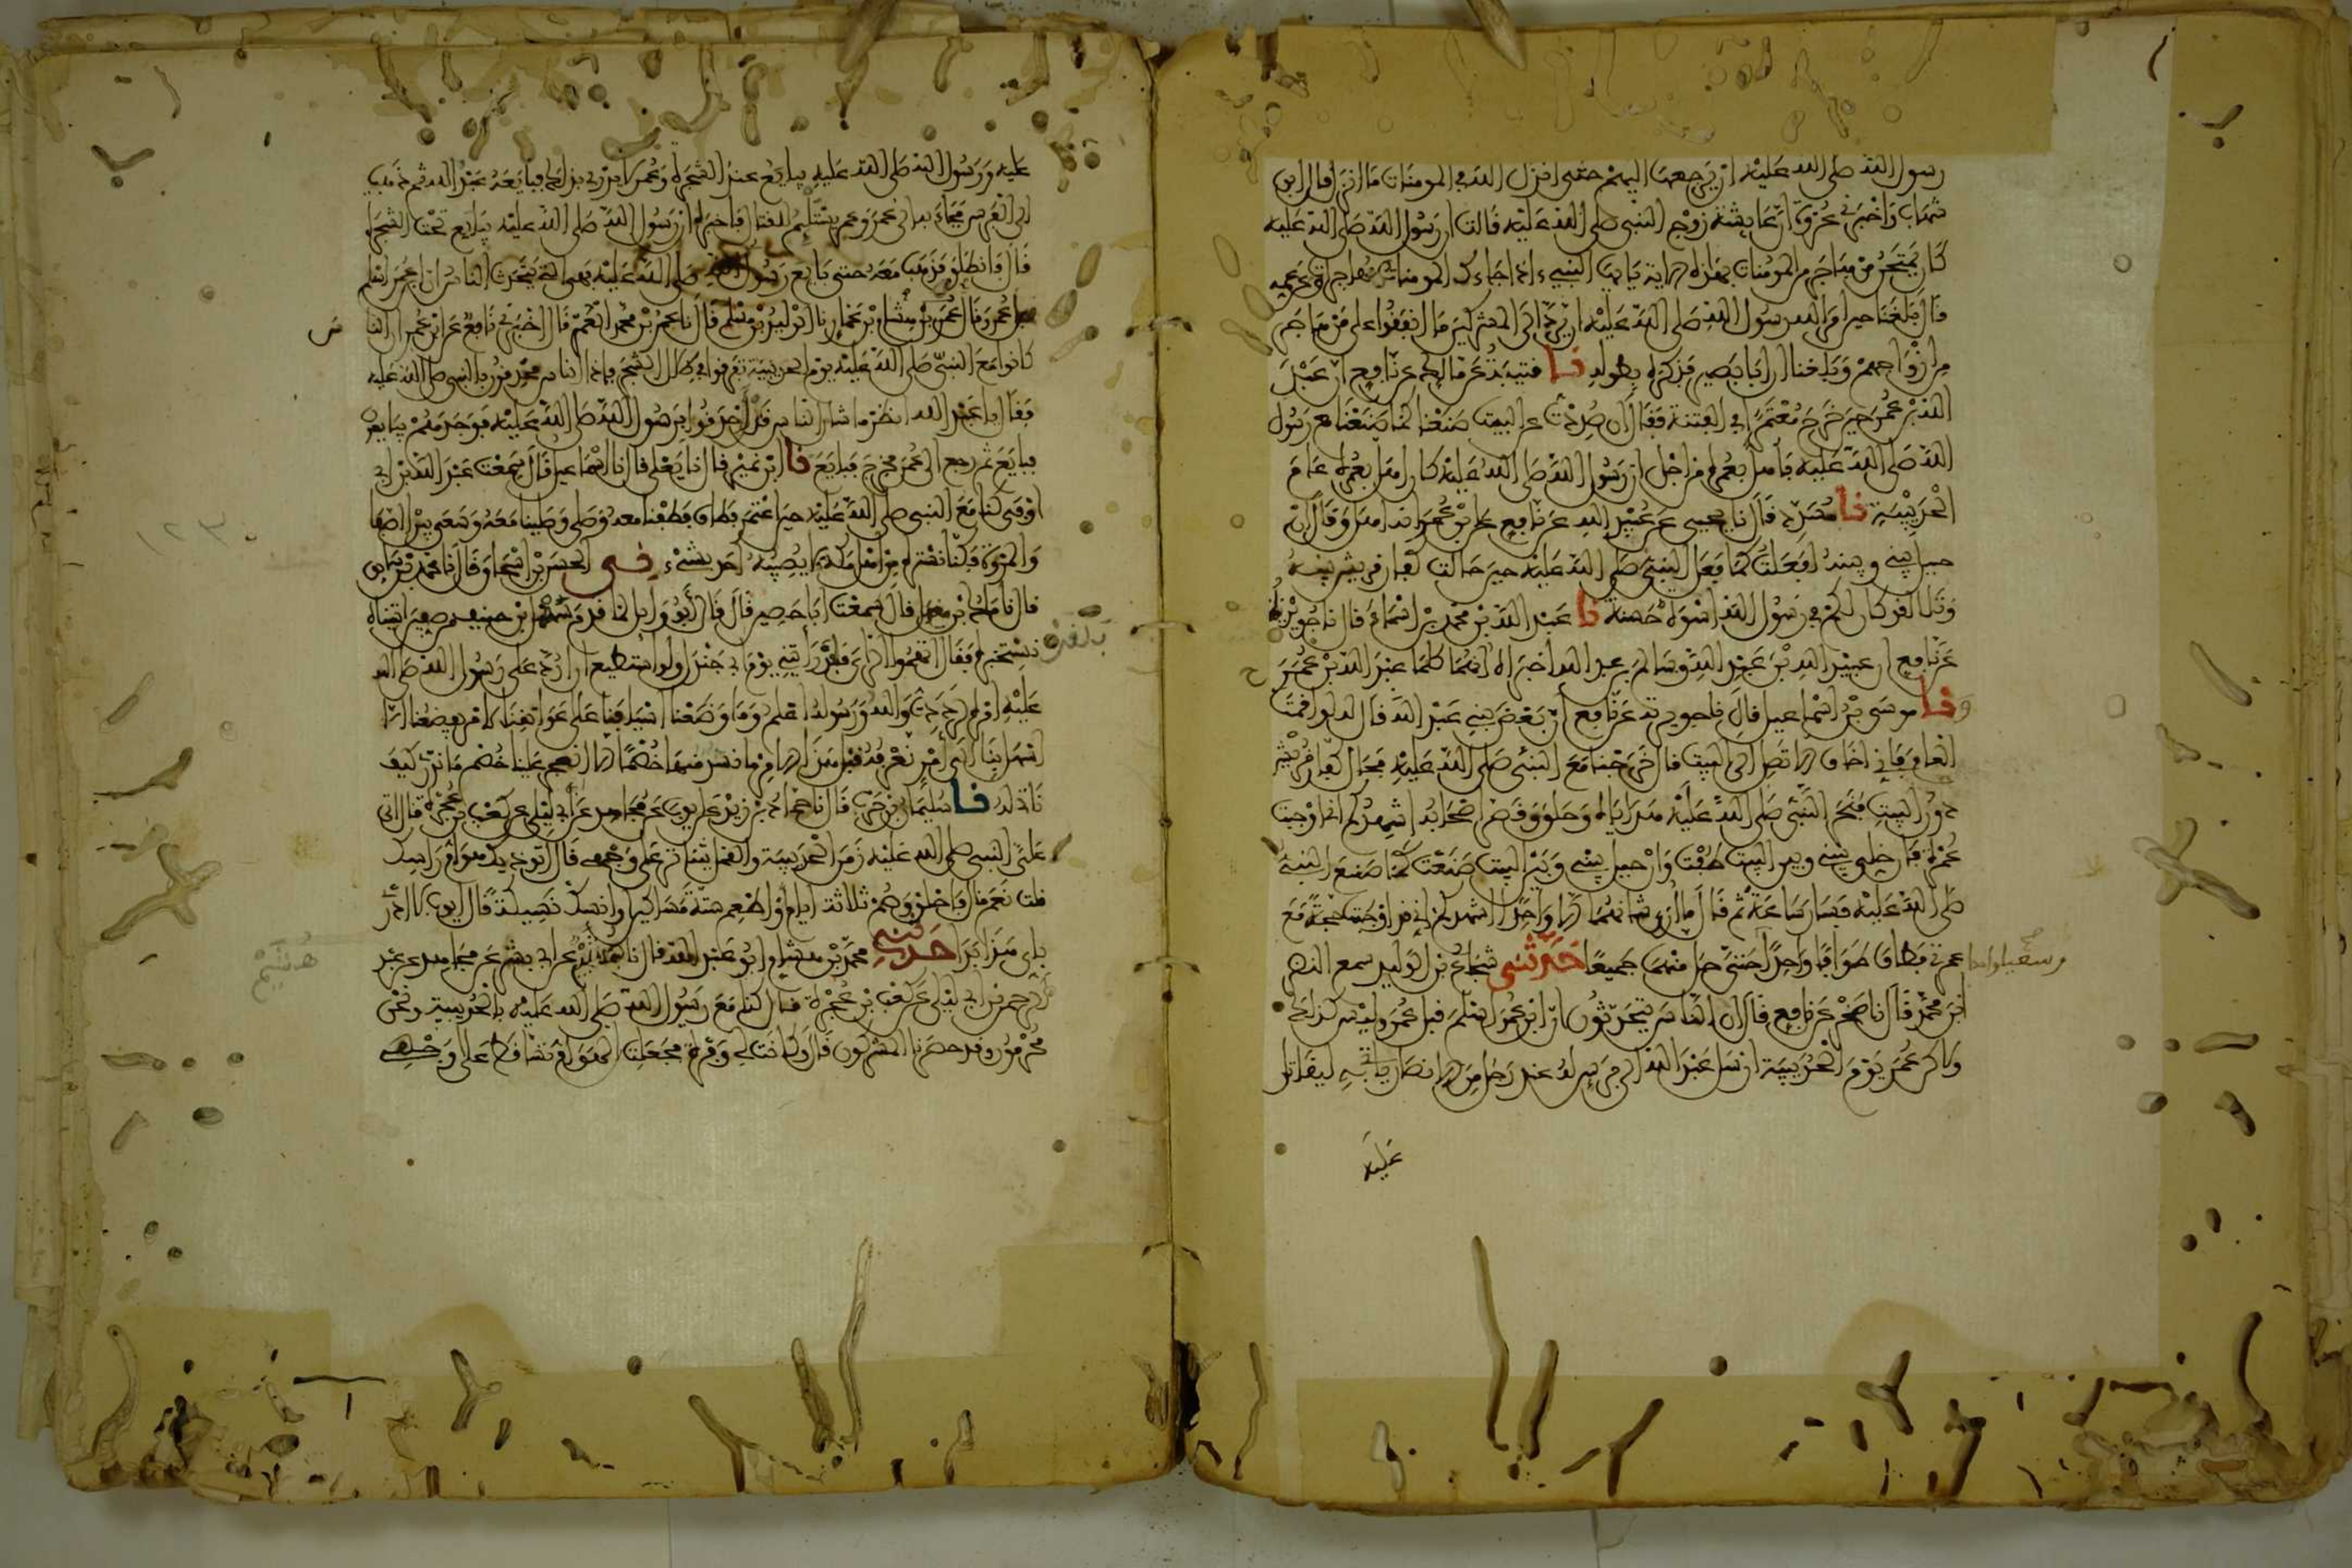 رسول الله صلى الله عليه ان يرجعها اليهم حتى انزل الله في المومنات ما انزل قال ابن
شهاب واخبرني عروة ان عايشة زوج النبي صلى الله عليه قالت ان رسول الله صلى الله عليه
كان يمتحن من هاجر من المومنات بهذه الاية يايها النبيء اذا جاءك المومنات مهاجرات وعن عمه
قال بلغنا حين امر الله رسول الله صلى الله عليه ان يرد الى المشركين ما انفقوا على من هاجر
من ازواجهم وبلغنا ان ابا بصير فذكره بطوله نا قتيبة عن مالك عن نافع ان عبد
الله بن عمر حين خرج معتمرا في الفتنة فقال ان صددت عن البيت صنعنا كما صنعنا مع رسول
الله صلى الله عليه فاهل بعمرة من اجل ان رسول الله صلى الله عليه كان اهل بعمرة عام
الحديبية نا مسدد قال نا يحيى عن عبيد الله عن نافع عن ابن عمر انه اهل وقال ان
حيل بيني وبينه لفعلت كما فعل النبي صلى الله عليه حين حالت كفار قريش بينه
وتلا لقد كان لكم في رسول الله اسوة حسنة نا عبد الله بن محمد بن اسماء قال نا جويرية
عن نافع ان عبيد الله بن عبد الله وسالم بن عبد الله اخبراه انهما كلما عبد الله بن عمر ح
ونا موسى بن اسماعيل قال نا جويرية عن نافع ان بعض بني عبد الله قال له لو اقمت
العام فاني اخاف الا تصل الى البيت قال خرجنا مع النبي صلى الله عليه فحال كفار قريش
دون البيت فنحر النبي صلى الله عليه هداياه وحلق وقصر اصحابه اشهدكم اني اوجبت
عمرة فان خلي بيني وبين البيت طفت وان حيل بيني وبين البيت صنعت كما صنع النبي
صلى الله عليه فسار ساعة ثم قال ما ارى شانهما الا واحدا اشهدكم اني قد اوجبت حجة مع
عمرتي فطاف طوافا واحدا حتى حل منهما جميعا حدثني شجاع بن الوليد سمع النضر
وسعيا واحدا صح
ابن محمد قال نا صخر عن نافع قال ان الناس يتحدثون ان ابن عمر اسلم قبل عمر وليس كذلك
ولاكن عمر يوم الحديبية ارسل عبد الله الى فرس له عند رجل من الانصار ياتي به ليقاتل
عليه
عليه ورسول الله صلى الله عليه يبايع عند الشجرة وعمر لا يدري بذلك فبايعه عبد الله ثم ذهب
الى الفرس فجاء به الى عمر وعمر يستلئم للقتال فاخبره ان رسول الله صلى الله عليه يبايع تحت الشجرة
قال فانطلق فذهب معه حتى بايع رسول الله صلى الله عليه فهي التي يتحدث الناس ان ابن عمر اسلم
قبل عمر وقال هشام بن عمار نا الوليد بن مسلم قال نا عمر بن محمد العمري قال اخبرني نافع عن ابن عمر ان الناس
كانوا مع النبي صلى الله عليه يوم الحديبية تفرقوا في ظلال الشجر فاذا الناس محدقون بالنبي صلى الله عليه
فقال يا عبد الله انظر ما شان الناس قد احدقوا برسول الله صلى الله عليه فوجدهم يبايعون
فبايع ثم رجع الى عمر فخرج فبايع نا ابن نمير قال نا يعلى قال نا اسماعيل قال سمعت عبد الله بن ابي
اوفى كنا مع النبي صلى الله عليه حين اعتمر فطاف فطفنا معه وصلى وصلينا معه وسعى بين الصفا
والمروة فكنا نستره من اهل مكة لا يصيبه احد بشيء ني الحسن بن اسحاق قال نا محمد بن سابق
قال نا مالك بن مغول قال سمعت ابا حصين قال قال ابو وائل لما قدم سهل بن حنيف من صفين اتيناه
نستخبره فقال اتهموا الراي فلقد رايتني يوم ابي جندل ولو استطيع ان ارد على رسول الله صلى الله
عليه امره لرددت والله ورسوله اعلم وما وضعنا اسيافنا على عواتقنا لامر يفظعنا الا
اسهلن بنا الى امر نعرفه قبل هذا الامر ما نسد منها خصما الا انفجر علينا خصم ما ندري كيف
ناتي له نا سليمان بن حرب قال نا حماد بن زيد عن ايوب عن مجاهد عن ابن ابي ليلى عن كعب بن عجرة قال اتى
علي النبي صلى الله عليه زمن الحديبية والقمل يتناثر على وجهي قال اتوذيك هوام راسك
قلت نعم قال فاحلق وصم ثلاثة ايام او اطعم ستة مساكين او انسك نسيكة قال ايوب لا ادري
باي هذا بدا حدثني محمد بن هشام ابو عبد الله قال نا هشيم عن ابي بشر عن مجاهد عن عبد
هشيم
الرحمن بن ابي ليلى عن كعب بن عجرة قال كنا مع رسول الله صلى الله عليه بالحديبية ونحن
محرمون وقد حصرنا المشركون قال وكانت لي وفرة فجعلت الهوام تساقط على وجهي